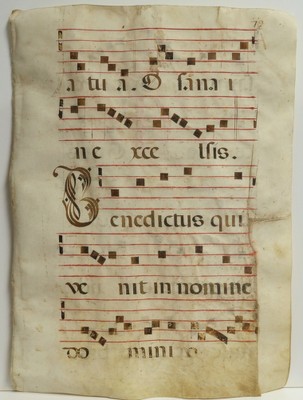 a tu a. O sana i
n e xce lsis.
Benedictus qui
ve nit in nomine
do mini